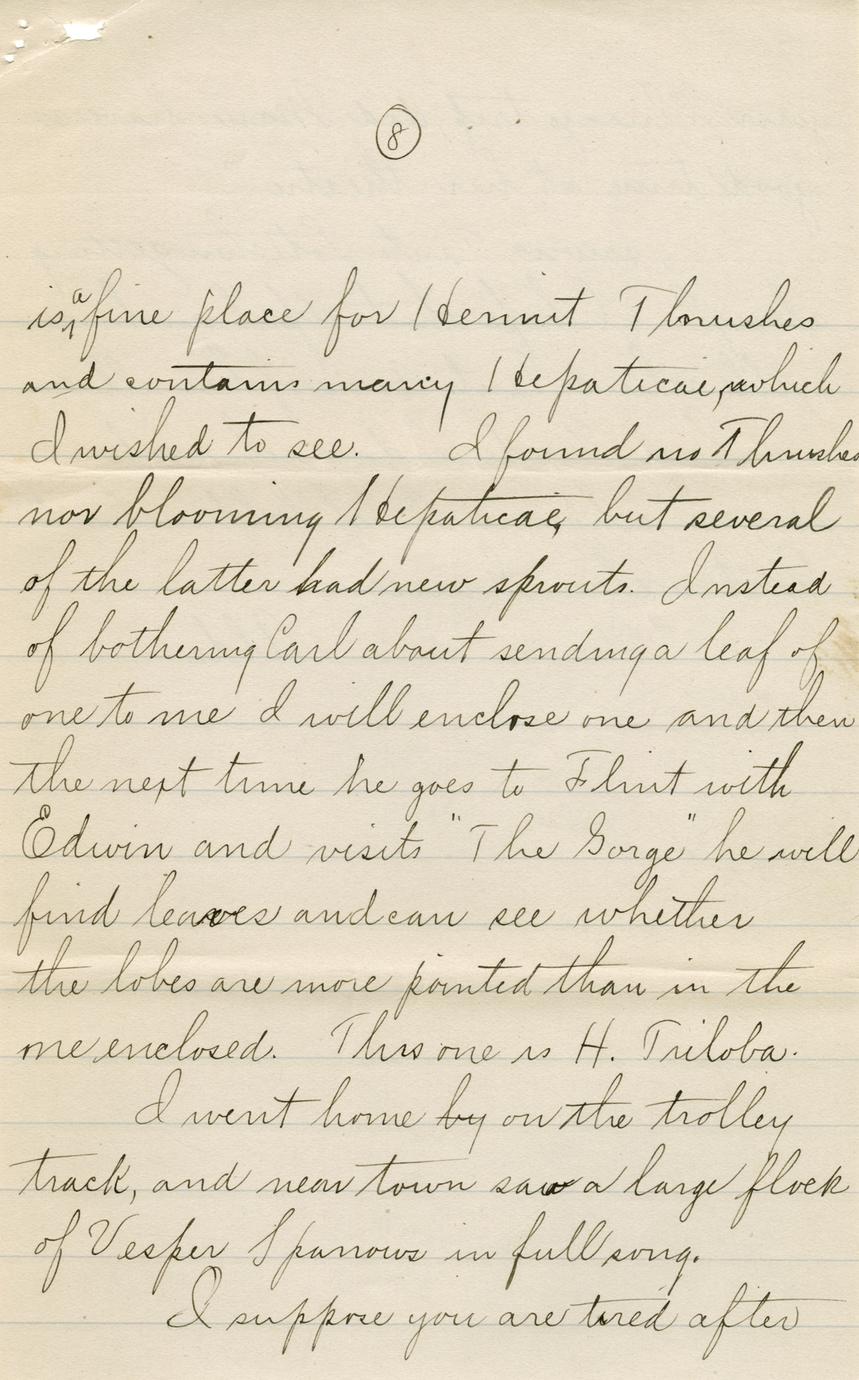 8
is a fine place for Hermit Thrushes
and contains many Hepaticae, which
I wished to see. I found no Thrushes
nor blooming Hepaticae, but several
of the latter had new sprouts. Instead
of bothering Carl about sending a leaf of
one to me I will enclose one and then
the next time he goes to Flint with
Edwin and visits "The Gorge" he will
find leaves and can see whether
the lobes are more pointed than in the
one enclosed. This one is H. Triloba.
I went home by on the trolley
track, and near town saw a large flock
of Vesper Sparrows in full song.
I suppose you are tired after